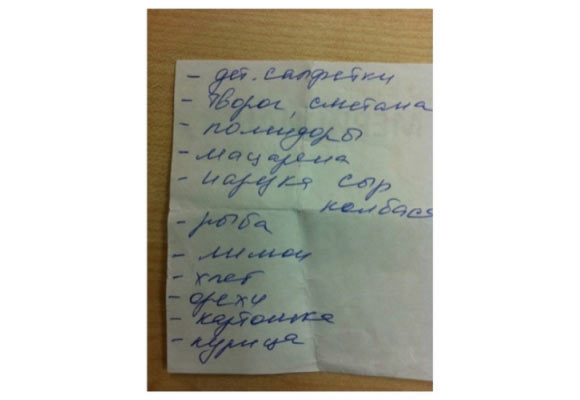 - дет. салфетки
- творог, сметана
- помидоры
- мацарела
- нарезка сыр
колбаса
- рыба
- лимон
- хлеб
- орехи
- картошка
- курица